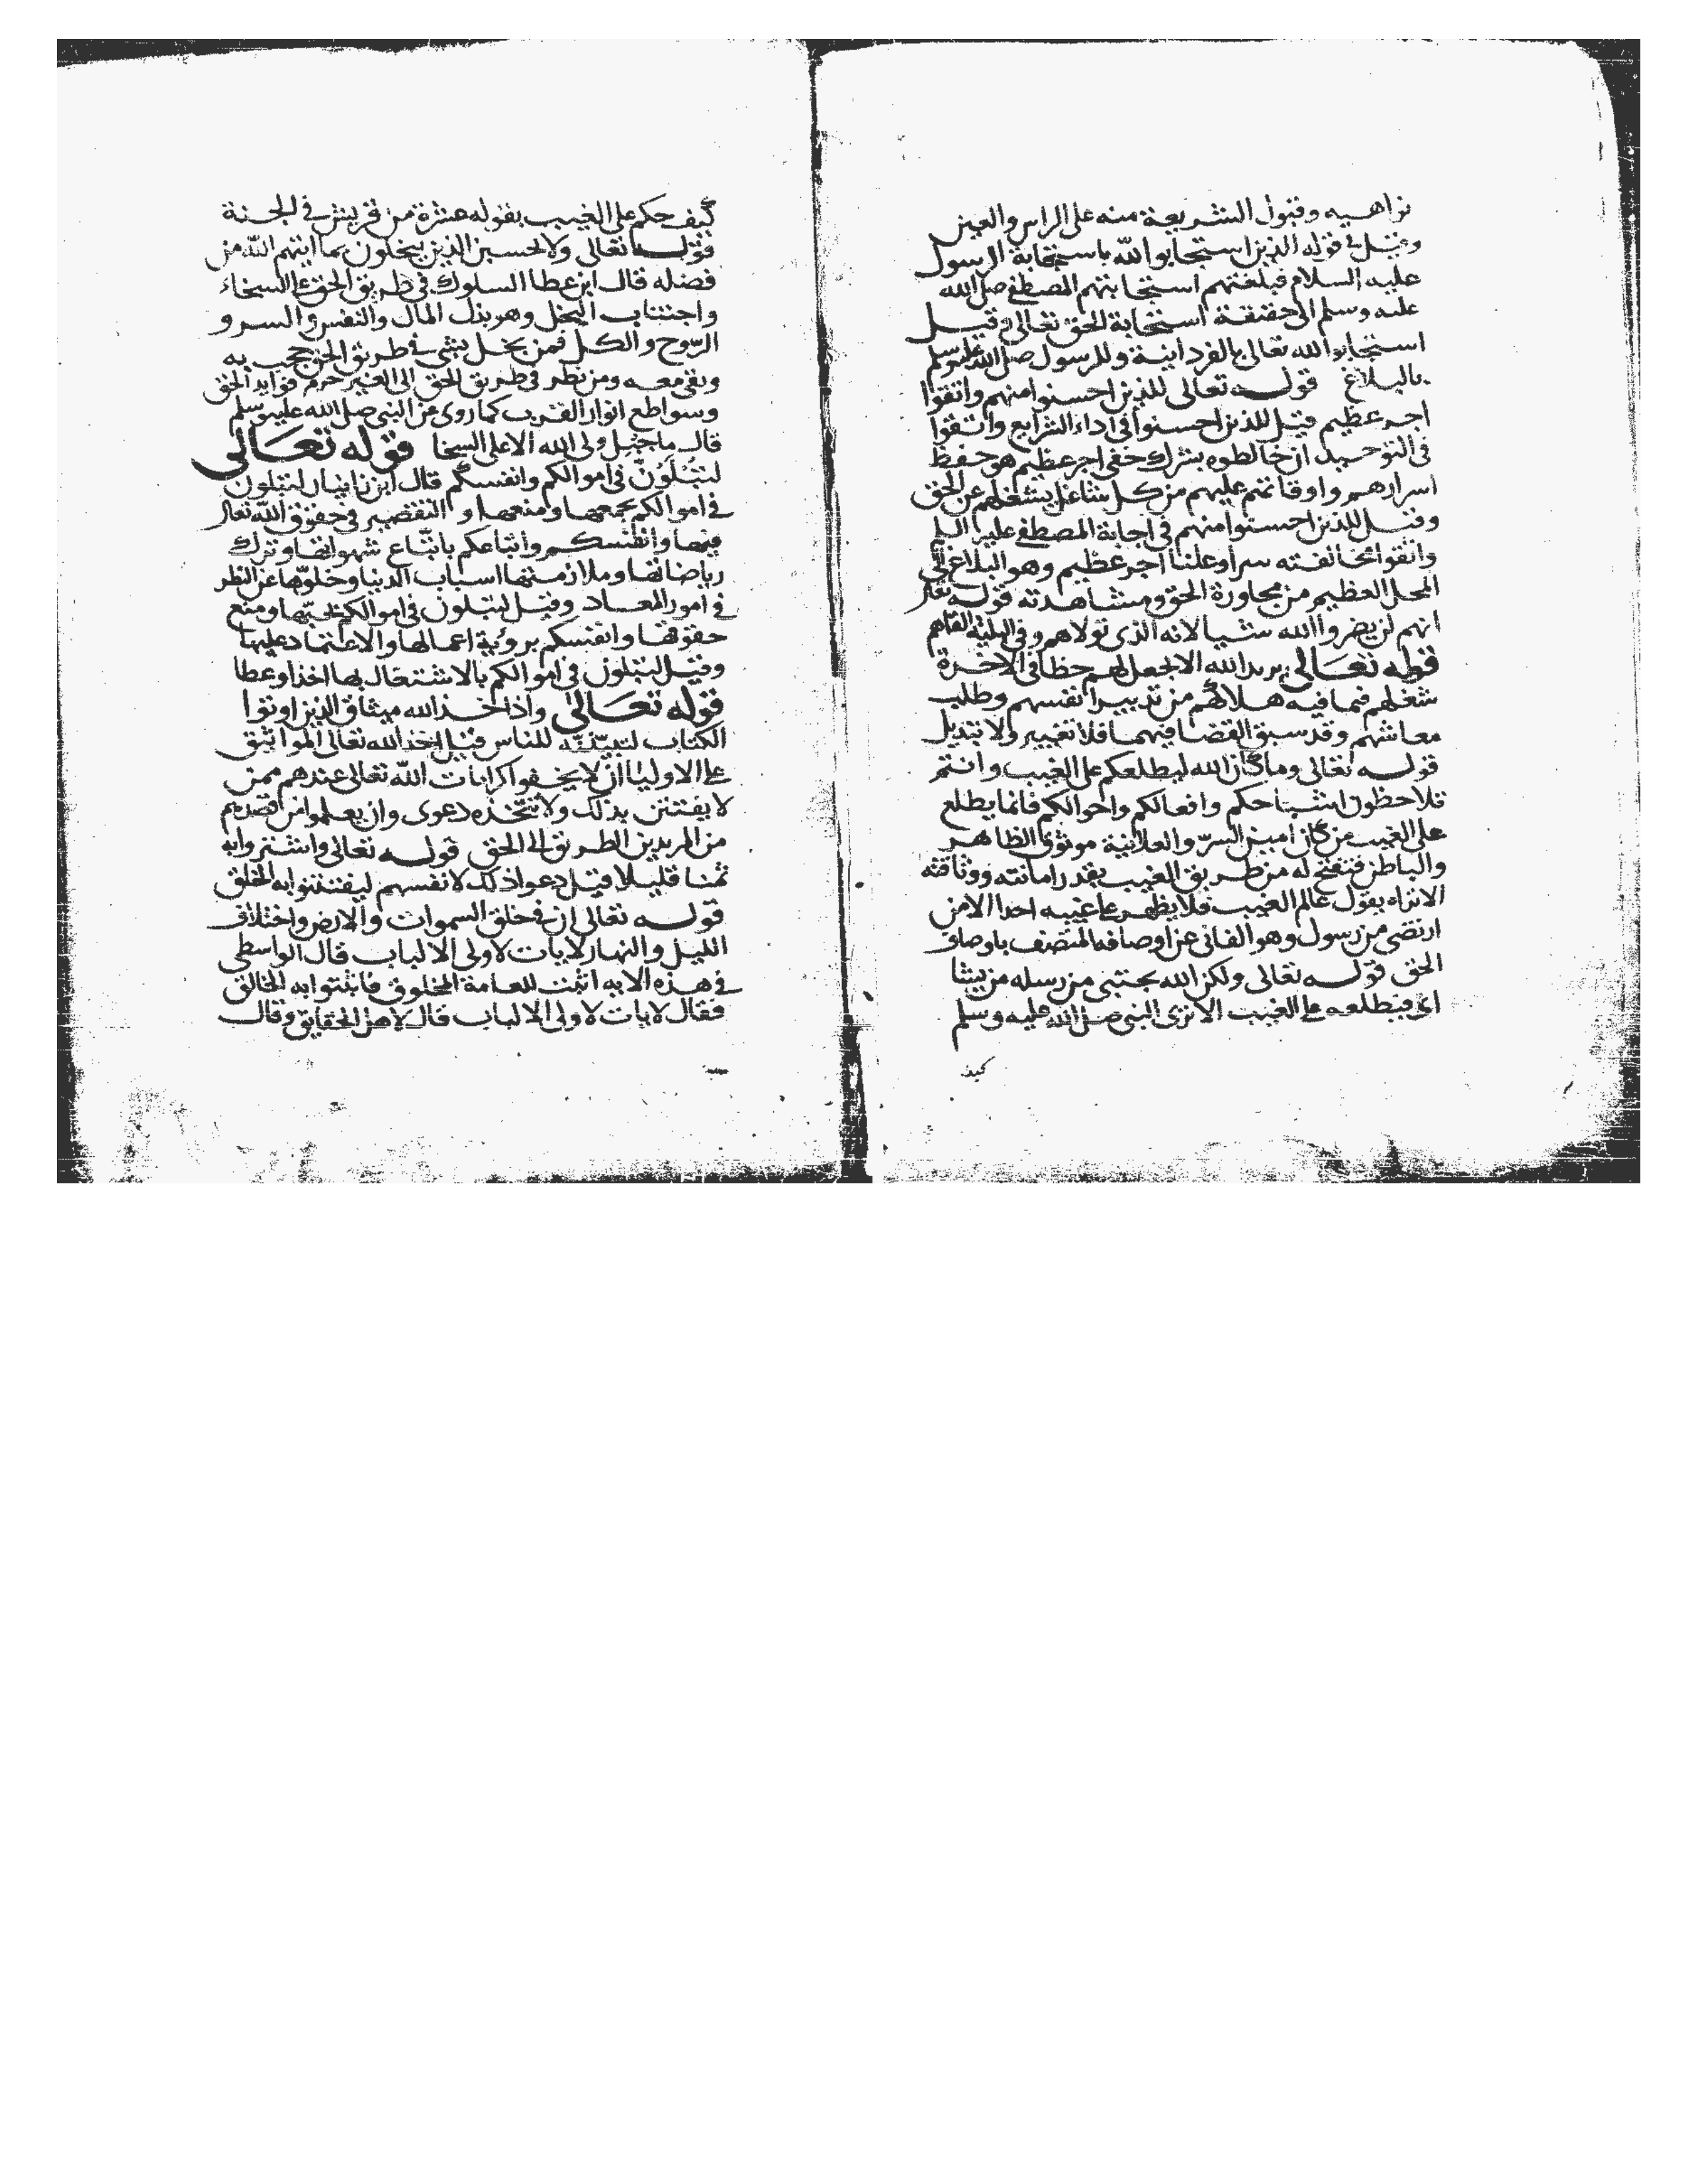 نواهيه وقبول الشريعة منه على الراس والعين
وقيل في قوله الذين استجابوا لله باستجابة الرسول
عليه السلام فبلغتهم استجابتهم المصطفى صلى الله
عليه وسلم الى حقيقة استجابة الحق تعالى وقيل
استجابوا لله تعالى بالفردانية وللرسول صلى الله عليه وسلم
بالبلاغ قوله تعالى للذين احسنوا منهم واتقوا
اجر عظيم قيل للذين احسنوا في اداء الشرايع واتقوا
في التوحيد ان خالطوه بشرك خفى اجر عظيم هو حفظ
اسرارهم واوقاتهم عليهم من كل شاغل يشغلهم عن الحق
وقيل للذين احسنوا منهم في اجابة المصطفى عليه السلم
واتقوا مخالفته سرا وعلنا اجر عظيم وهو البلاغ الى
المحل العظيم من مجاورة الحق ومشاهدته قوله تعالى
انهم لن يضروا الله شيا لانه الذى تولاهم وفى البلية القاهم
قوله تعالى يريد الله الا يجعل لهم حظا فى الاخرة
شغلهم فيما فيه هلاكهم من تدبير انفسهم وطلب
معاشهم وقد سبق القضا فيهما فلا تغيير ولا تبديل
قوله تعالى وما كان الله ليطلعكم على الغيب وانتم
تلاحظون اشباحكم وافعالكم واحوالكم فانما يطلع
على الغيب من كان امين السرّ والعلانية موثوق الظاهر
والباطن فنفتح له من طريق الغيب بقدر امانته ووثاقته
الا تراه يقول عالم الغيب فلا يظهر على غيبه احدا الا من
ارتضى من رسول وهو الفانى عن اوصافه المتصف باوصاف
الحق قوله تعالى ولكن الله يجتبى من رسله من يشا
اى فيطلعه على الغيب الا ترى النبى صلى الله عليه وسلم
كيف
كيف حكم على الغيب بقوله عشرة من قريش في الجنة
قوله تعالى ولا تحسبن الذين يبخلون بما اتيهم الله من
فضله قال ابن عطا السلوك فى طريق الحق على السخاء
واجتناب البخل وهو بذل المال والنفس والسر و
الرّوح والكل فمن بخل بشى في طريق الحق حجب به
وبقى معه ومن نظر فى طريق الحق الى الغير حرم فوايد الحق
وسواطع انوار القرب كما روى عن النبى صلى الله عليه وسلم
قال ما جبل ولى الله الا على السخا قوله تعالى
لتبلونّ فى اموالكم وانفسكم قال ابن زانيار لتبلون
في اموالكم بجمعها ومنعها والتقصير فى حقوق الله تعالى
فيها وانفسكم واتباعكم باتّباع شهواتها وترك
رياضاتها وملازمتها اسباب الدنيا وخلوّها عن النظر
في امور المعاد وقيل لتبلون فى اموالكم بحبّها ومنع
حقوقها وانفسكم برؤية اعمالها والاعتماد عليها
وقيل لتبلون فى اموالكم بالاشتغال بها اخذا وعطا
قوله تعالى واذ اخذ الله ميثاق الذين اوتوا
الكتاب لتبيّننّه للناس قيل اخذ الله تعالى المواثيق
على الاوليا ان لا يخفوا كرامات الله تعالى عندهم ممن
لا يفتتن بذلك ولا يتّخذه دعوى وان يعلموا من قصدهم
من المريدين الطريق الى الحق قوله تعالى واشتروا به
ثمنا قليلا قيل دعوا ذلك لانفسهم ليفتتنوا به الخلق
قوله تعالى ان في خلق السموات والارض واختلاف
الليل والنهار لايات لاولى الالباب قال الواسطى
في هذه الايه اثبت للعامة المخلوق فاثبتوا به الخالق
فقال لايات لاولى الالباب قال لاهل الحقايق وقال